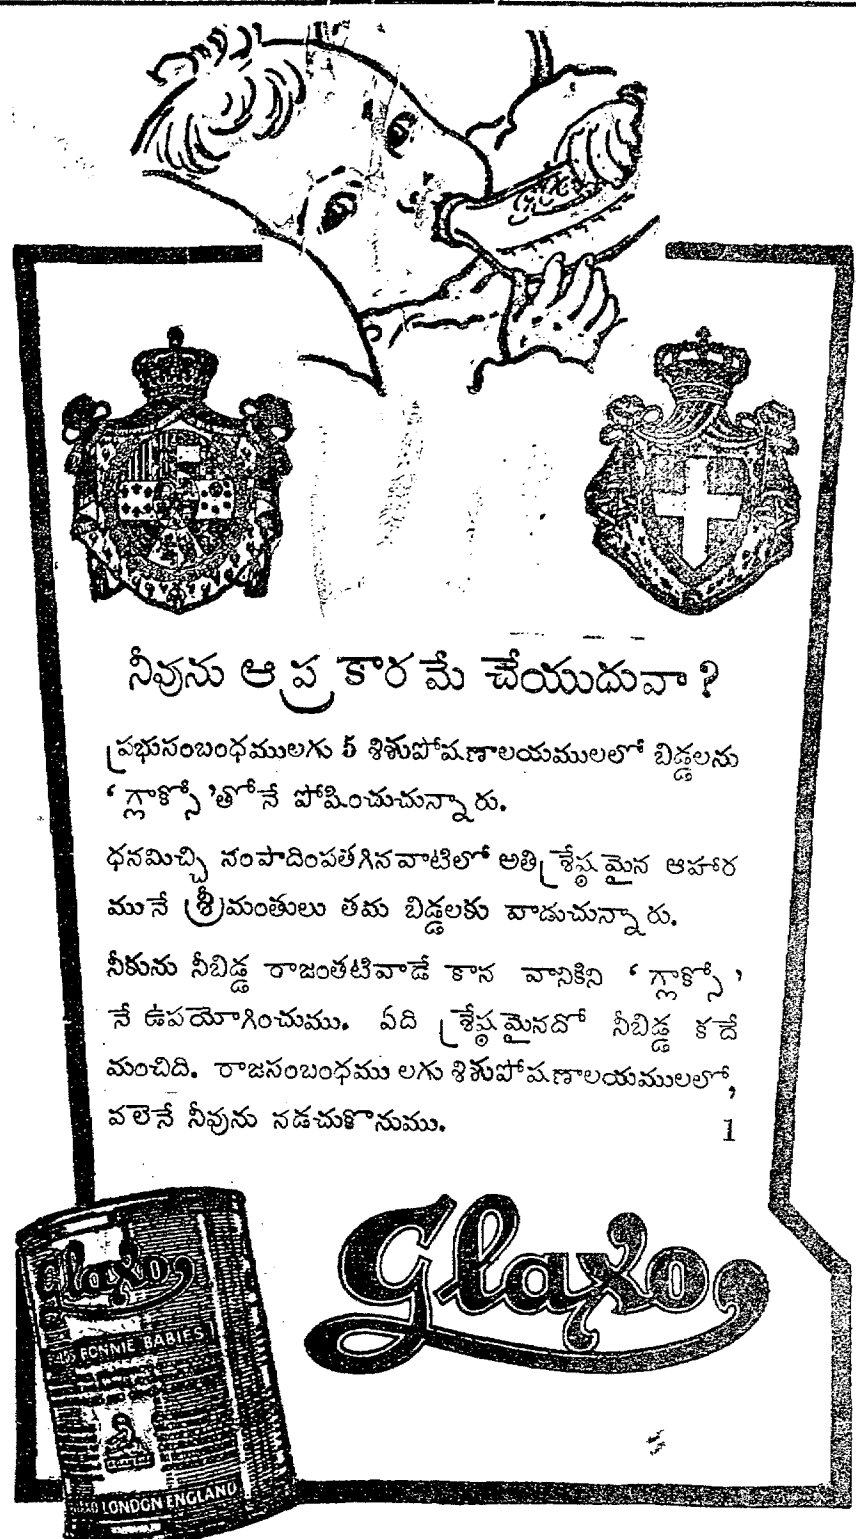 నీవును ఆ ప్రకారమే చేయుదువా?
ప్రభుసంబంధములగు 5 శిశుపోషణాలయములలో బిడ్డలను
‘గ్లాక్సో’తోనే పోషించుచున్నారు.
ధనమిచ్చి సంపాదింపతగినవాటిలో అతి శ్రేష్ఠమైన ఆహార
మునే శ్రీమంతులు తమ బిడ్డలకు వాడుచున్నారు.
నీకును నీబిడ్డ రాజంతటివాడే కాన వానికిని ‘గ్లాక్సో’
నే ఉపయోగించుము. ఏది శ్రేష్ఠమైనదో నీబిడ్డ కదే
మంచిది. రాజసంబంధము లగు శిశుపోషణాలయములలో,
వలెనే నీవును నడచుకొనుము. 1
Glaxo
Glaxo
BONNIE BABIES
LONDON ENGLAND